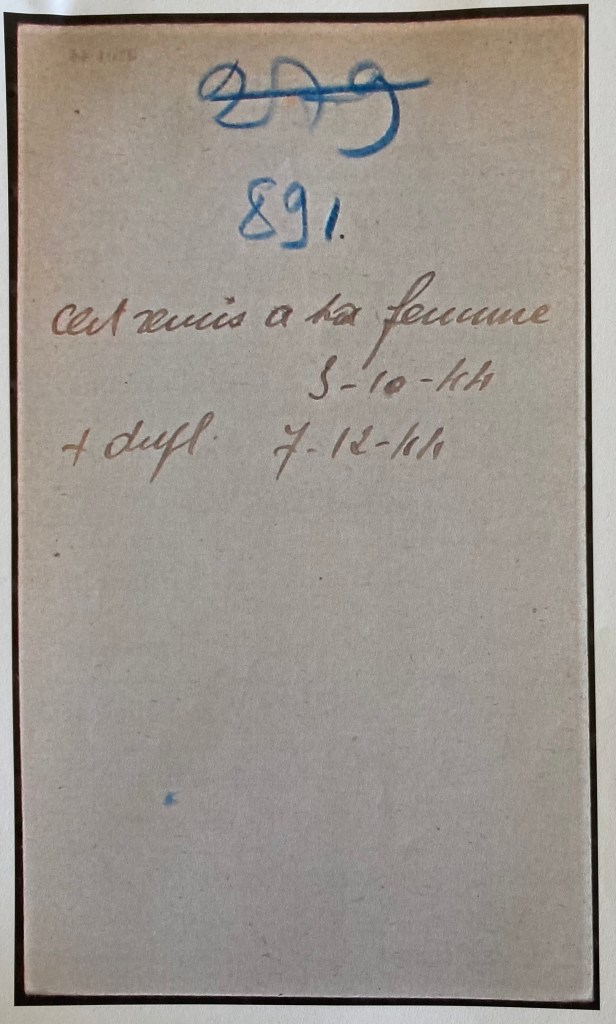 279
891.
cert remis a sa femme
3-10-44
+ dupl. 7-12-44